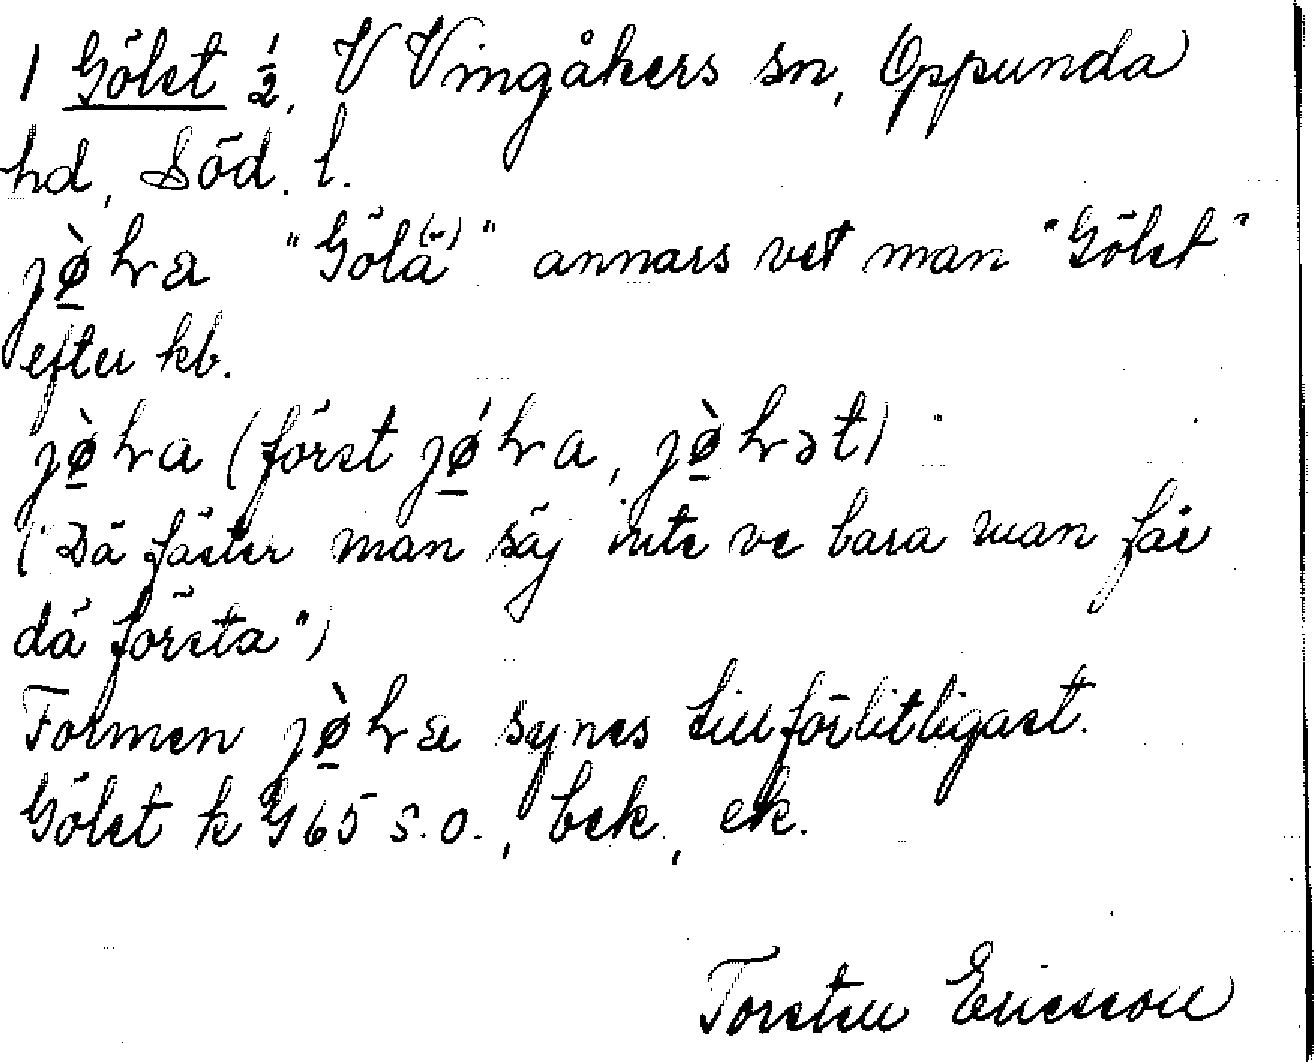 1 Gölet ½, V Vingåkers sn, Oppunda
hd, Söd. l.
jø̠̀ƚɐ "Gölä(-)" annars vet man "Gölet"
efter kb.
jø̠̀ƚa (först jǿ̠ƚa, jø̠̀ƚət)
("Dä fäster man säj inte ve bara man får
dä första")
Formen jø̠̀ƚɐ synes tillförlitligast.
Gölet k G 65 s.o., bek., ek.
Torsten Ericsson